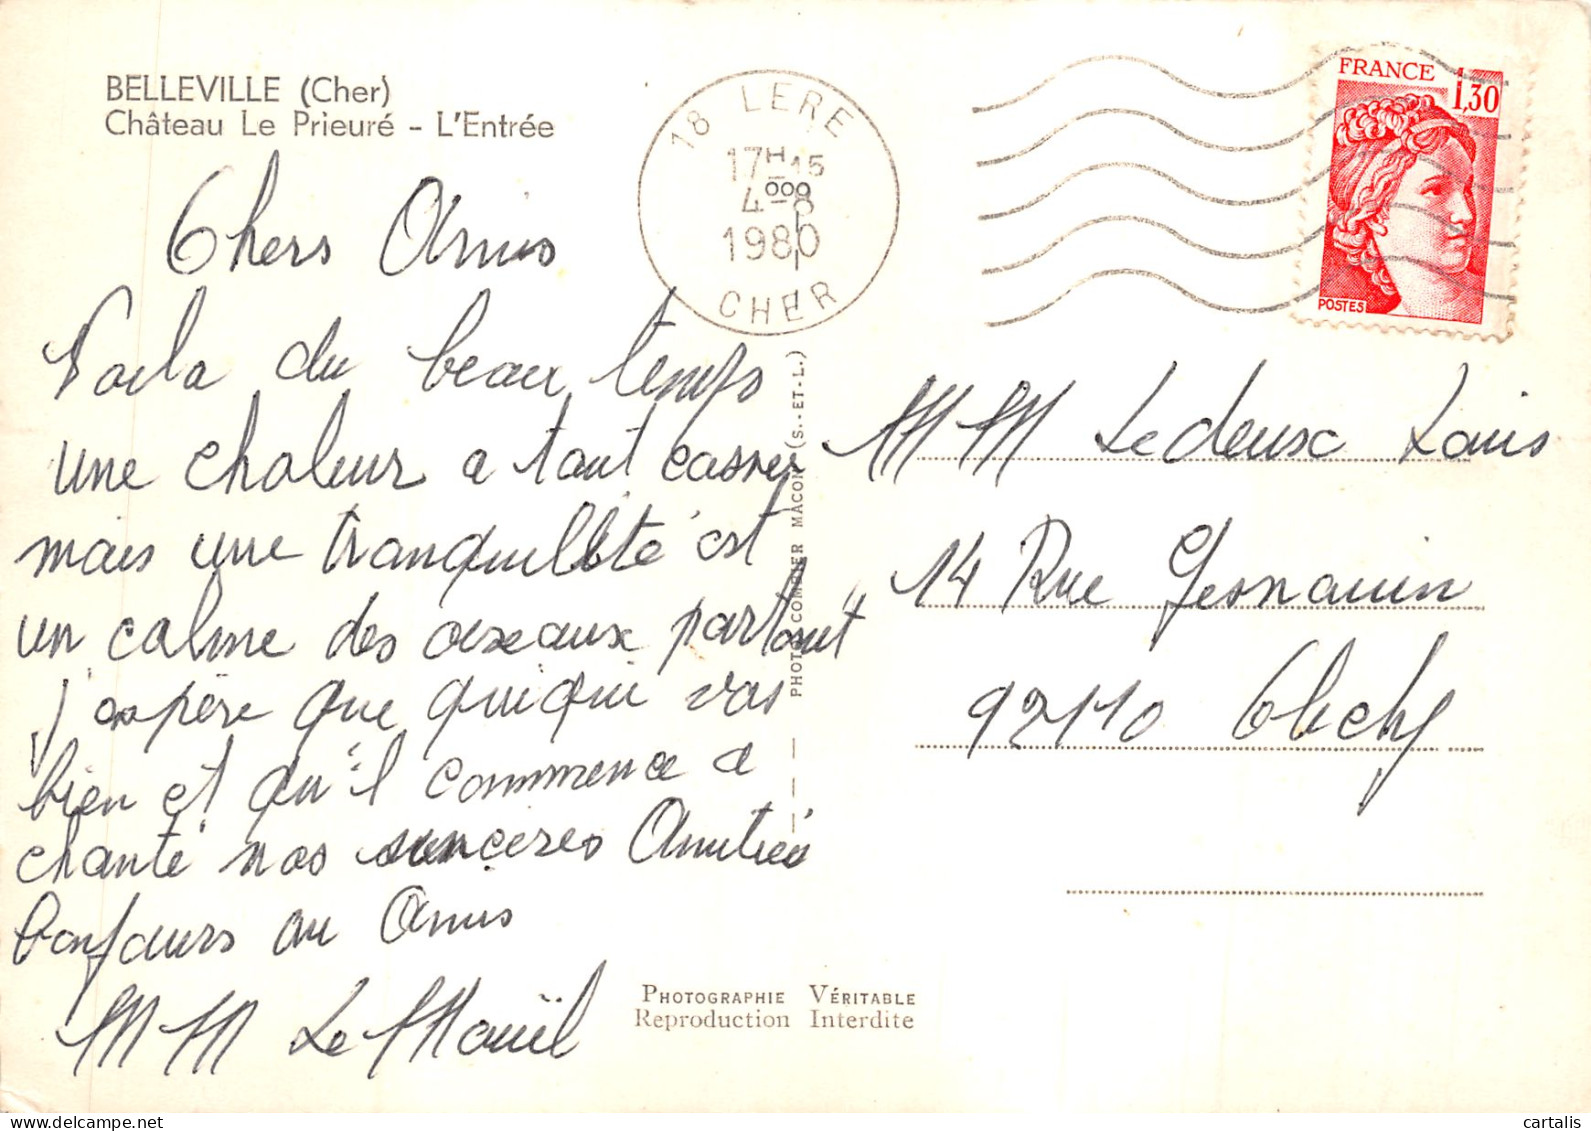 BELLEVILLE (Cher)
Château Le Prieuré - L'Entrée
18 LERE
17H15
4-8
1980
CHER
FRANCE
1,30
POSTES
Chers Amis
Voila du beau temps
une chaleur a tout casser
mais une tranquillité est
un calme des oiseaux partout
j'espère que quiqui vas
bien et qu'il commence a
chanté nos sinceres Amitiés
bonjours au Amis
M M Le Maüil
M M Ledeux Louis
14 Rue Gesnouin
92110 Clichy
PHOTO COMBIER MACON (S.-ET-L.)
PHOTOGRAPHIE VÉRITABLE
Reproduction Interdite
cartalis